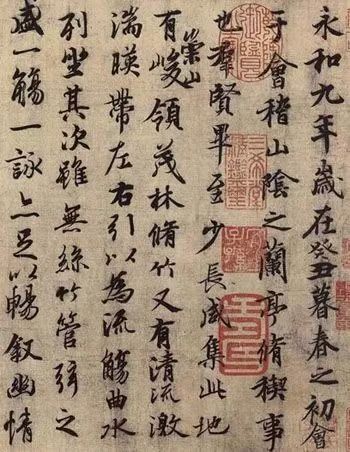 永和九年歲在癸丑暮春之初會
于會稽山陰之蘭亭脩稧事
也群賢畢至少長咸集此地
崇山
有峻領茂林脩竹又有清流激
湍暎帶左右引以為流觴曲水
列坐其次雖無絲竹管弦之
盛一觴一詠亦足以暢敘幽情